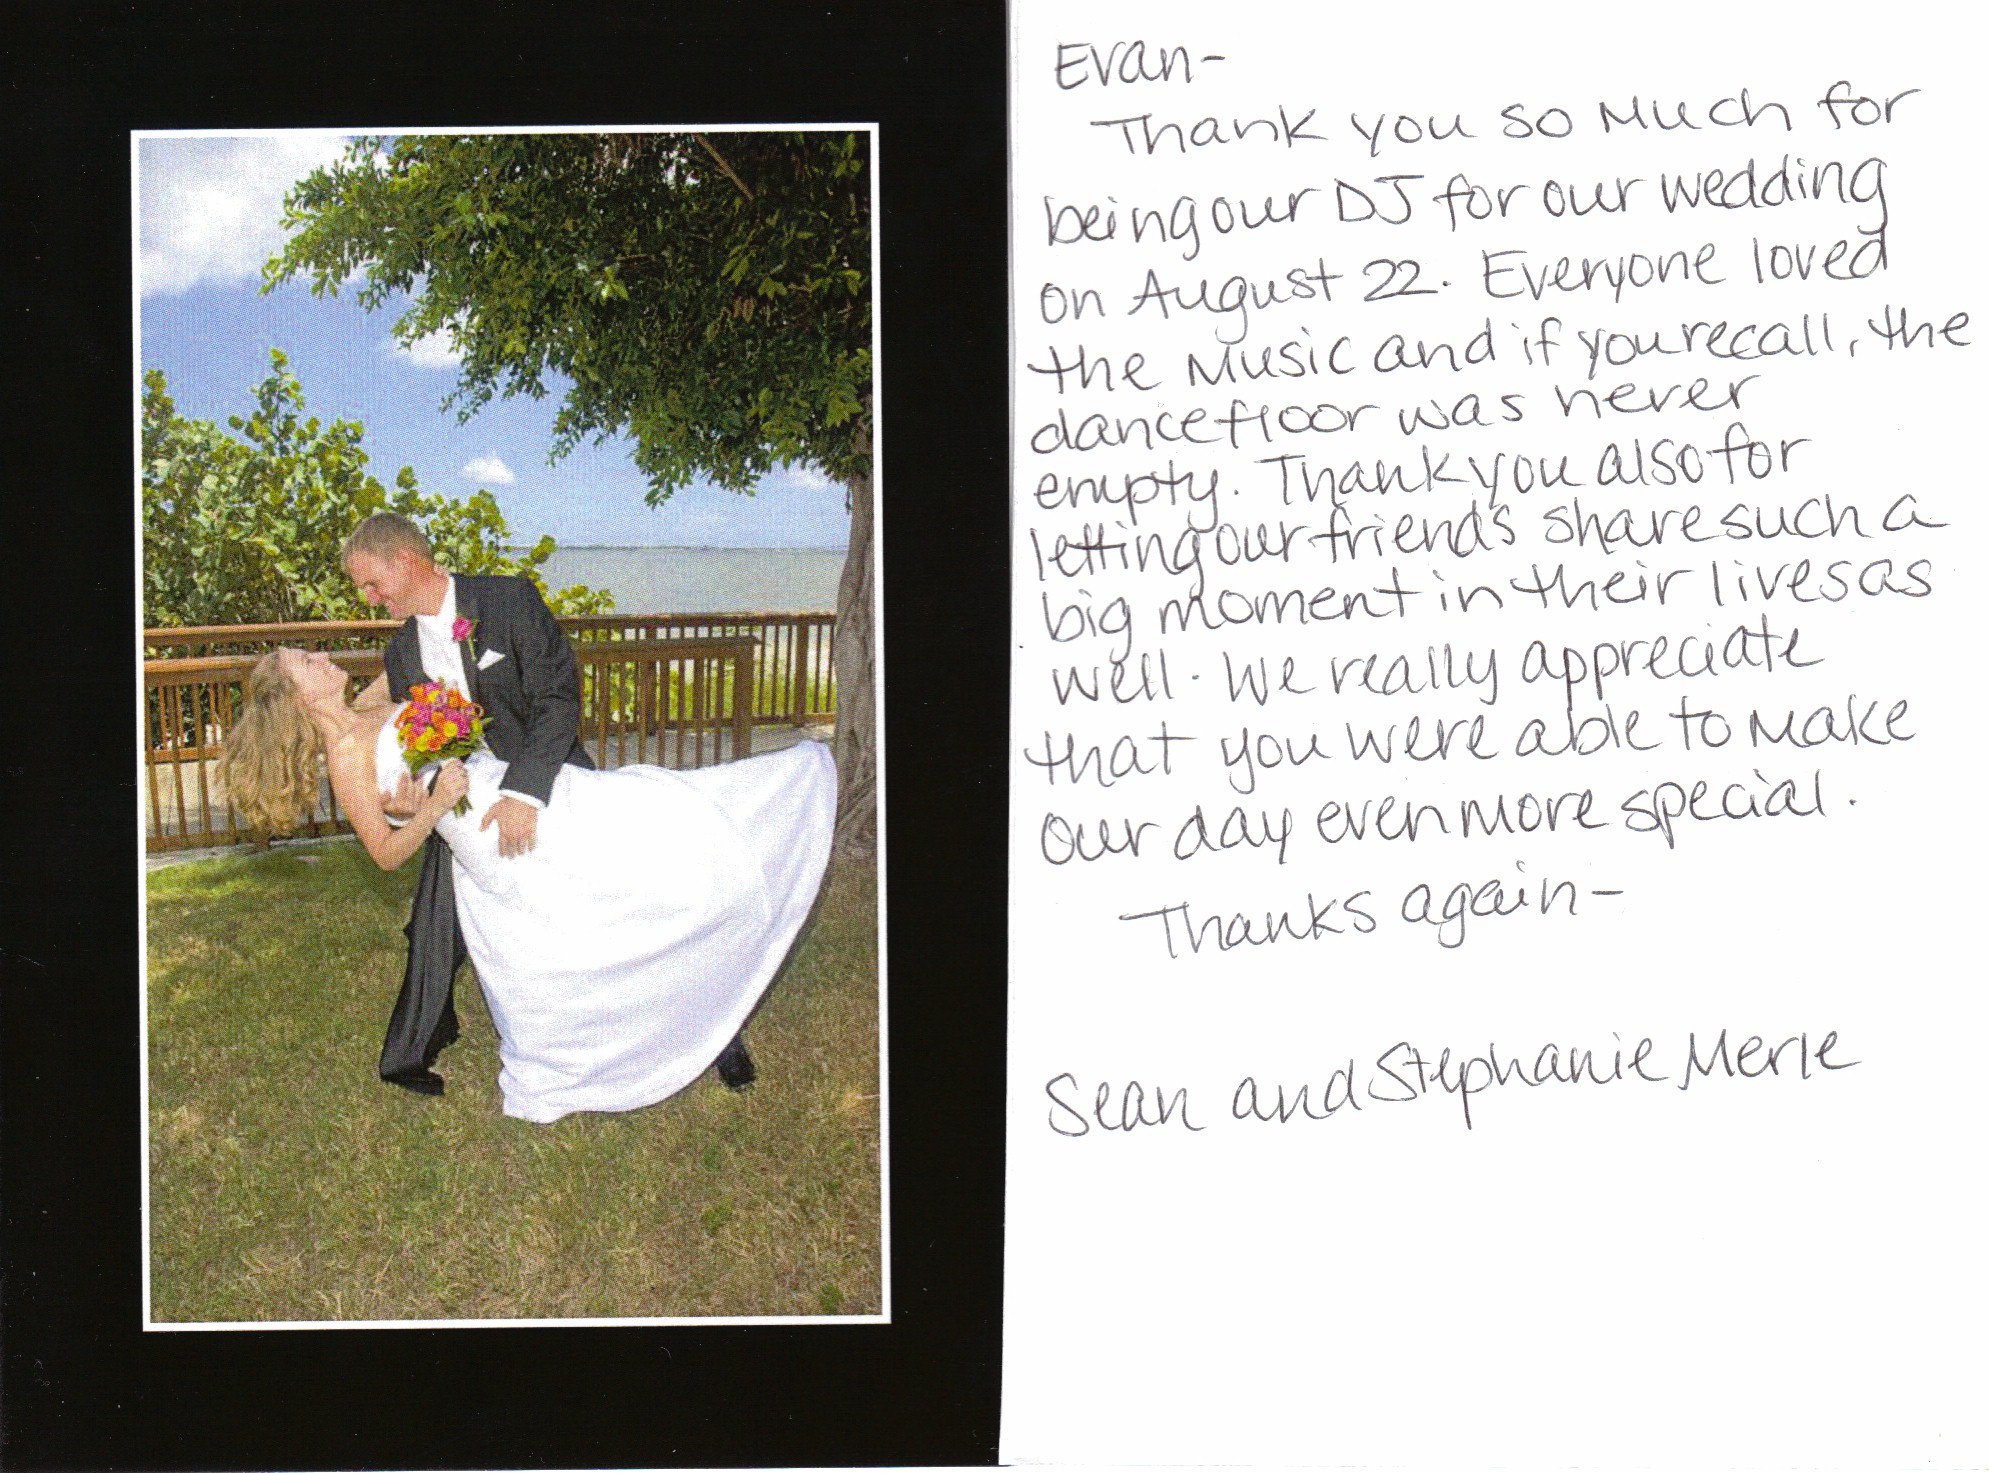 Evan-
Thank you so much for
being our DJ for our wedding
on August 22. Everyone loved
the music and if you recall, the
dancefloor was never
empty. Thank you also for
letting our friends share such a
big moment in their lives as
well. We really appreciate
that you were able to make
our day even more special.
Thanks again-
Sean and Stephanie Merle